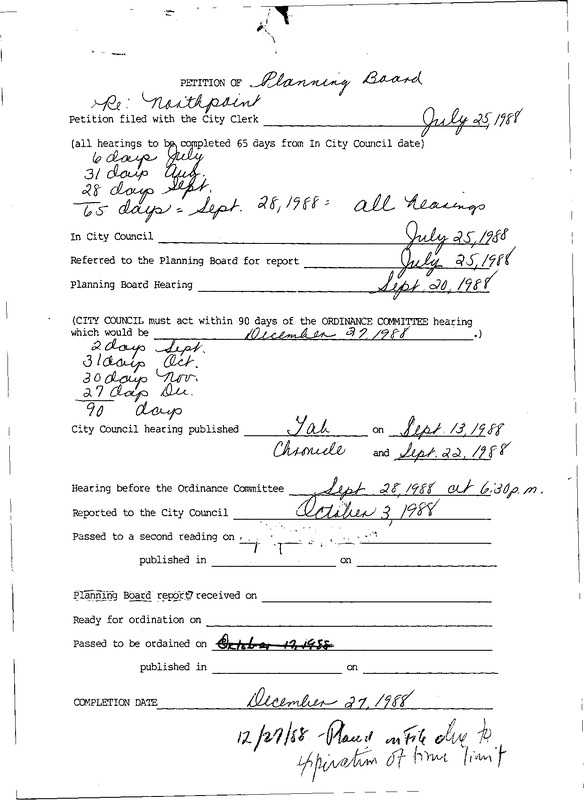 PETITION OF Planning Board
Re: Northpoint
Petition filed with the City Clerk July 25, 1988
(all hearings to be completed 65 days from In City Council date)
6 days July
31 days Aug.
28 days Sept.
65 days = Sept. 28, 1988 = all hearings
In City Council July 25, 1988
Referred to the Planning Board for report July 25, 1988
Planning Board Hearing Sept. 20, 1988
(CITY COUNCIL must act within 90 days of the ORDINANCE COMMITTEE hearing
which would be December 27, 1988 .)
2 days Sept.
31 days Oct.
30 days Nov.
27 days Dec.
90 days
City Council hearing published Tab on Sept. 13, 1988
Chronicle and Sept. 22, 1988
Hearing before the Ordinance Committee Sept. 28, 1988 at 6:30 p.m.
Reported to the City Council October 3, 1988
Passed to a second reading on
published in on
Planning Board report received on
Ready for ordination on
Passed to be ordained on October 17, 1988
published in on
COMPLETION DATE December 27, 1988
12/27/88 - Placed on File due to
expiration of time limit